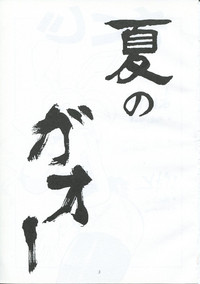 夏の
ガオー